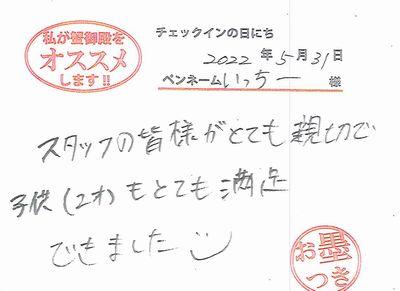 私が蟹御殿を
オススメ
します!!
チェックインの日にち
2022年5月31日
ペンネーム いっちー 様
スタッフの皆様がとても親切で
子供(2才)もとても満足
できました
お墨
つき